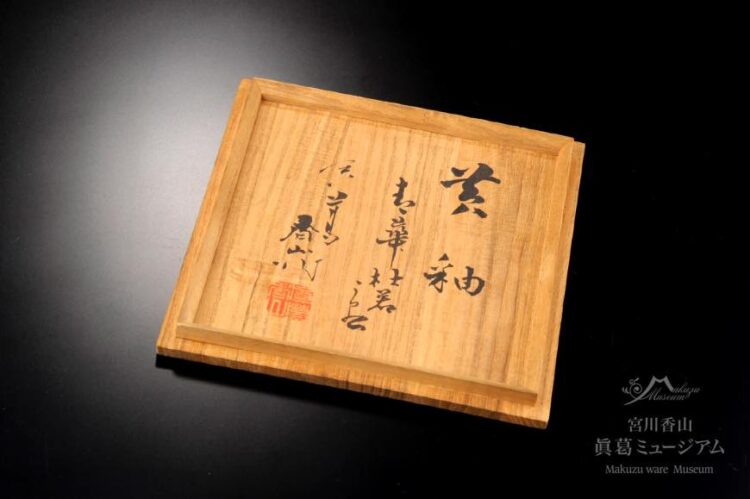 黄釉
青華杜若
真葛
香山
Makuzu
Museum
宮川香山
眞葛ミュージアム
Makuzu ware Museum